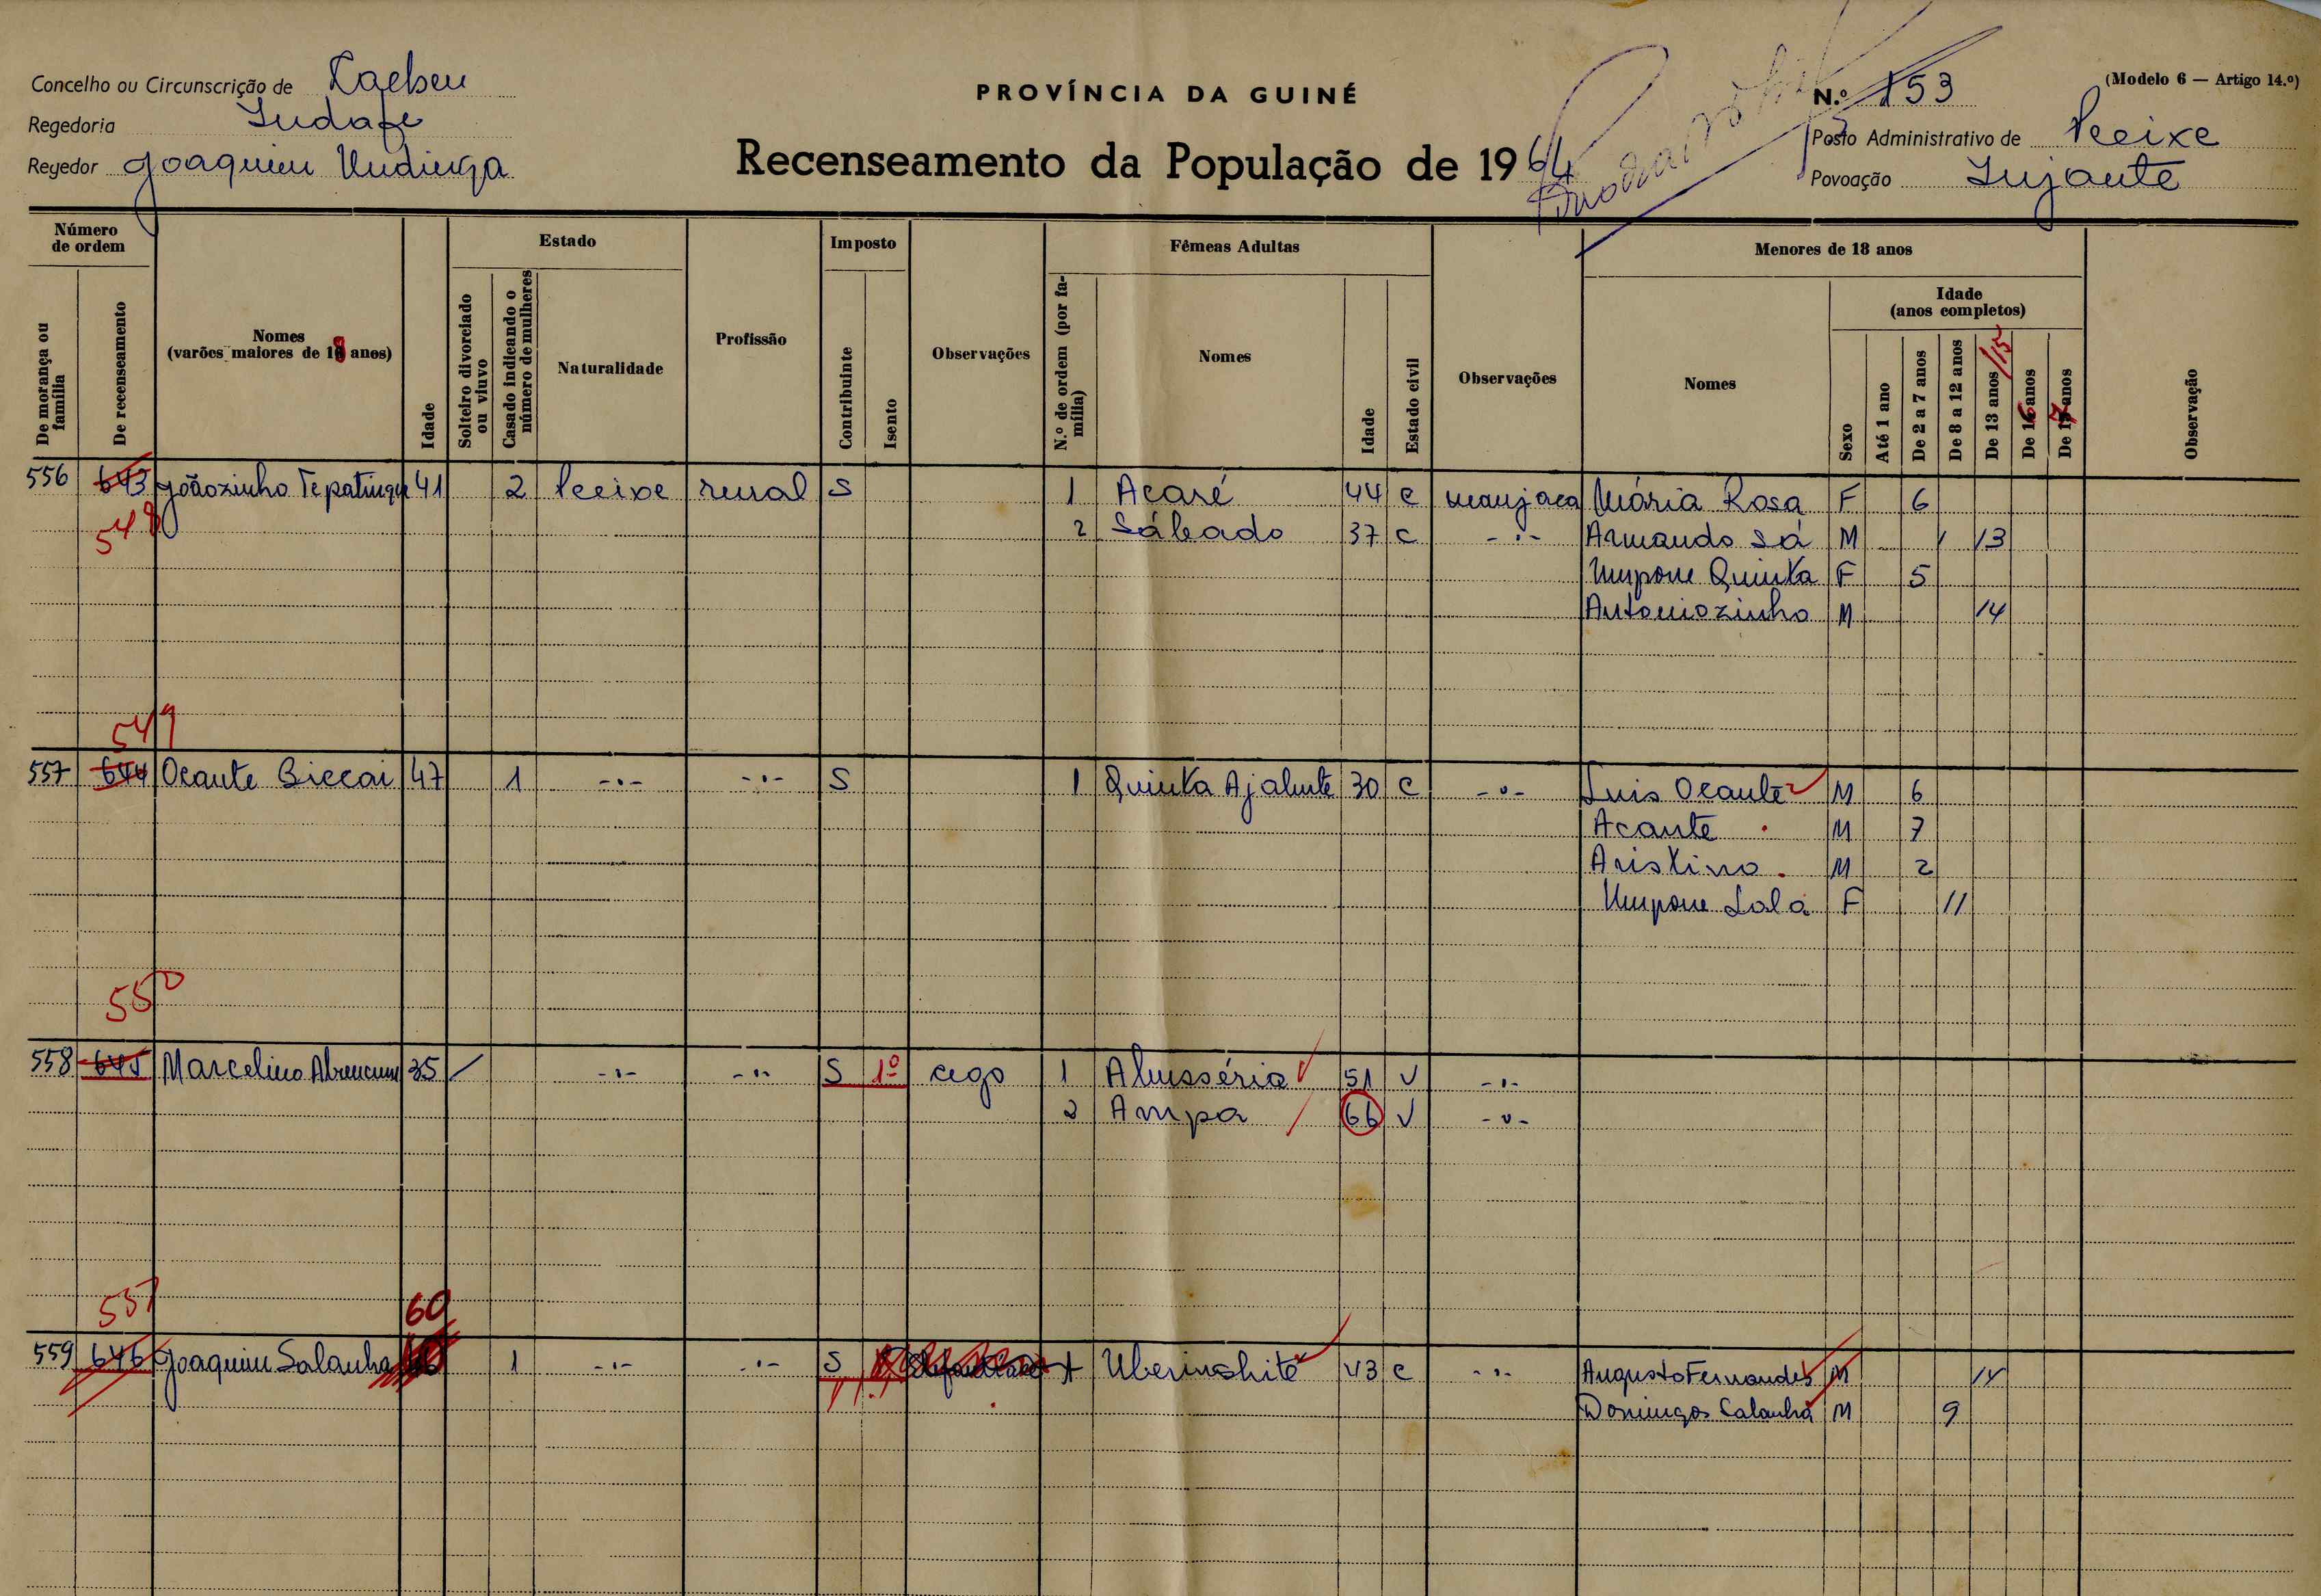 Concelho ou Circunscrição de Caebeu
PROVÍNCIA DA GUINÉ
N.º 153
(Modelo 6 — Artigo 14.º)
Regedoria
Posto Administrativo de Peeixe
Regedor Joaquim Undinga
Recenseamento da População de 1964
Povoação Jujante
Número de ordem
Estado
Imposto
Fêmeas Adultas
Menores de 18 anos
De morança ou família
De recenseamento
Nomes (varões maiores de 18 anos)
Idade
Solteiro divorciado ou viuvo
Casado indicando o número de mulheres
Naturalidade
Profissão
Contribuinte
Isento
Observações
N.º de ordem (por família)
Nomes
Idade
Estado civil
Observações
Nomes
Sexo
Idade (anos completos)
Até 1 ano
De 2 a 7 anos
De 8 a 12 anos
De 13 anos /15
De 16 anos
De 17 anos
Observação
556 643 Joãozinho Tepatinga 41 2 Peeixe rural S 1 Acaré 44 C manjaca Mária Rosa F 6
548 2 Sábado 37 C -·- Armando Sá M 13
Umpone Quinta F 5
Antoniozinho M 14
549
557 644 Ocante Biccai 47 1 -·- -·- S 1 Quinta Ajalute 30 C -·- Luis Ocante M 6
Acante M 7
Aristino M 2
Umpone Lala F 11
550
558 645 Marcelino 35 / -·- -·- S 1º cego 1 Alusséria 51 V -·-
2 Ampa 66 V -·-
551 60
559 646 Joaquim Salanha 1 -·- -·- S 1 Uberinshite 43 C -·- Augusto Fernandes M 14
Domingos Calanha M 9